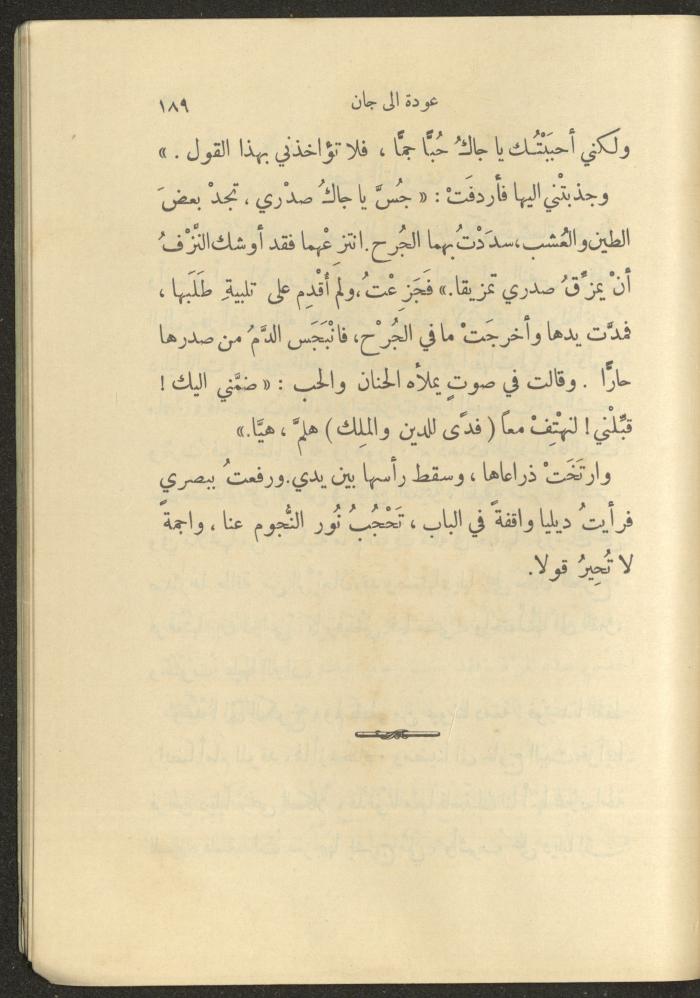 عودة الى جان ١٨٩
ولكني أحبَبْتُك يا جاكُ حُبًّا جمًّا ، فلا تؤاخذني بهذا القول . »
وجذبتْني اليها فأردفَتْ : « جُسَّ يا جاكُ صدْري ، تجدْ بعضَ
الطين والعُشب، سدَدْتُ بهما الجُرح . انتزعْهما فقد أوشك النَّزْفُ
أنْ يمزِّقُ صدري تمزيقا. » فَجَزِعْتُ، ولم أُقْدِم على تلبيةِ طَلَبها ،
فمدَّت يدها وأخرجَتْ ما في الجُرْح، فانْبَجَس الدَّمُ من صدرها
حارًّا . وقالت في صوتٍ يملأه الحنان والحب : « ضمَّني اليك !
قبِّلْني ! لنهْتِفْ معاً ( فدًى للدين والملِك ) هلمَّ ، هيَّا. »
وارتَخَتْ ذراعاها ، وسقط رأسها بين يدي. ورفعتُ ببصري
فرأيتُ ديليا واقفةً في الباب ، تَحْجُبُ نُور النُّجوم عنا ، واجمةً
لا تُحِيرُ قولا.